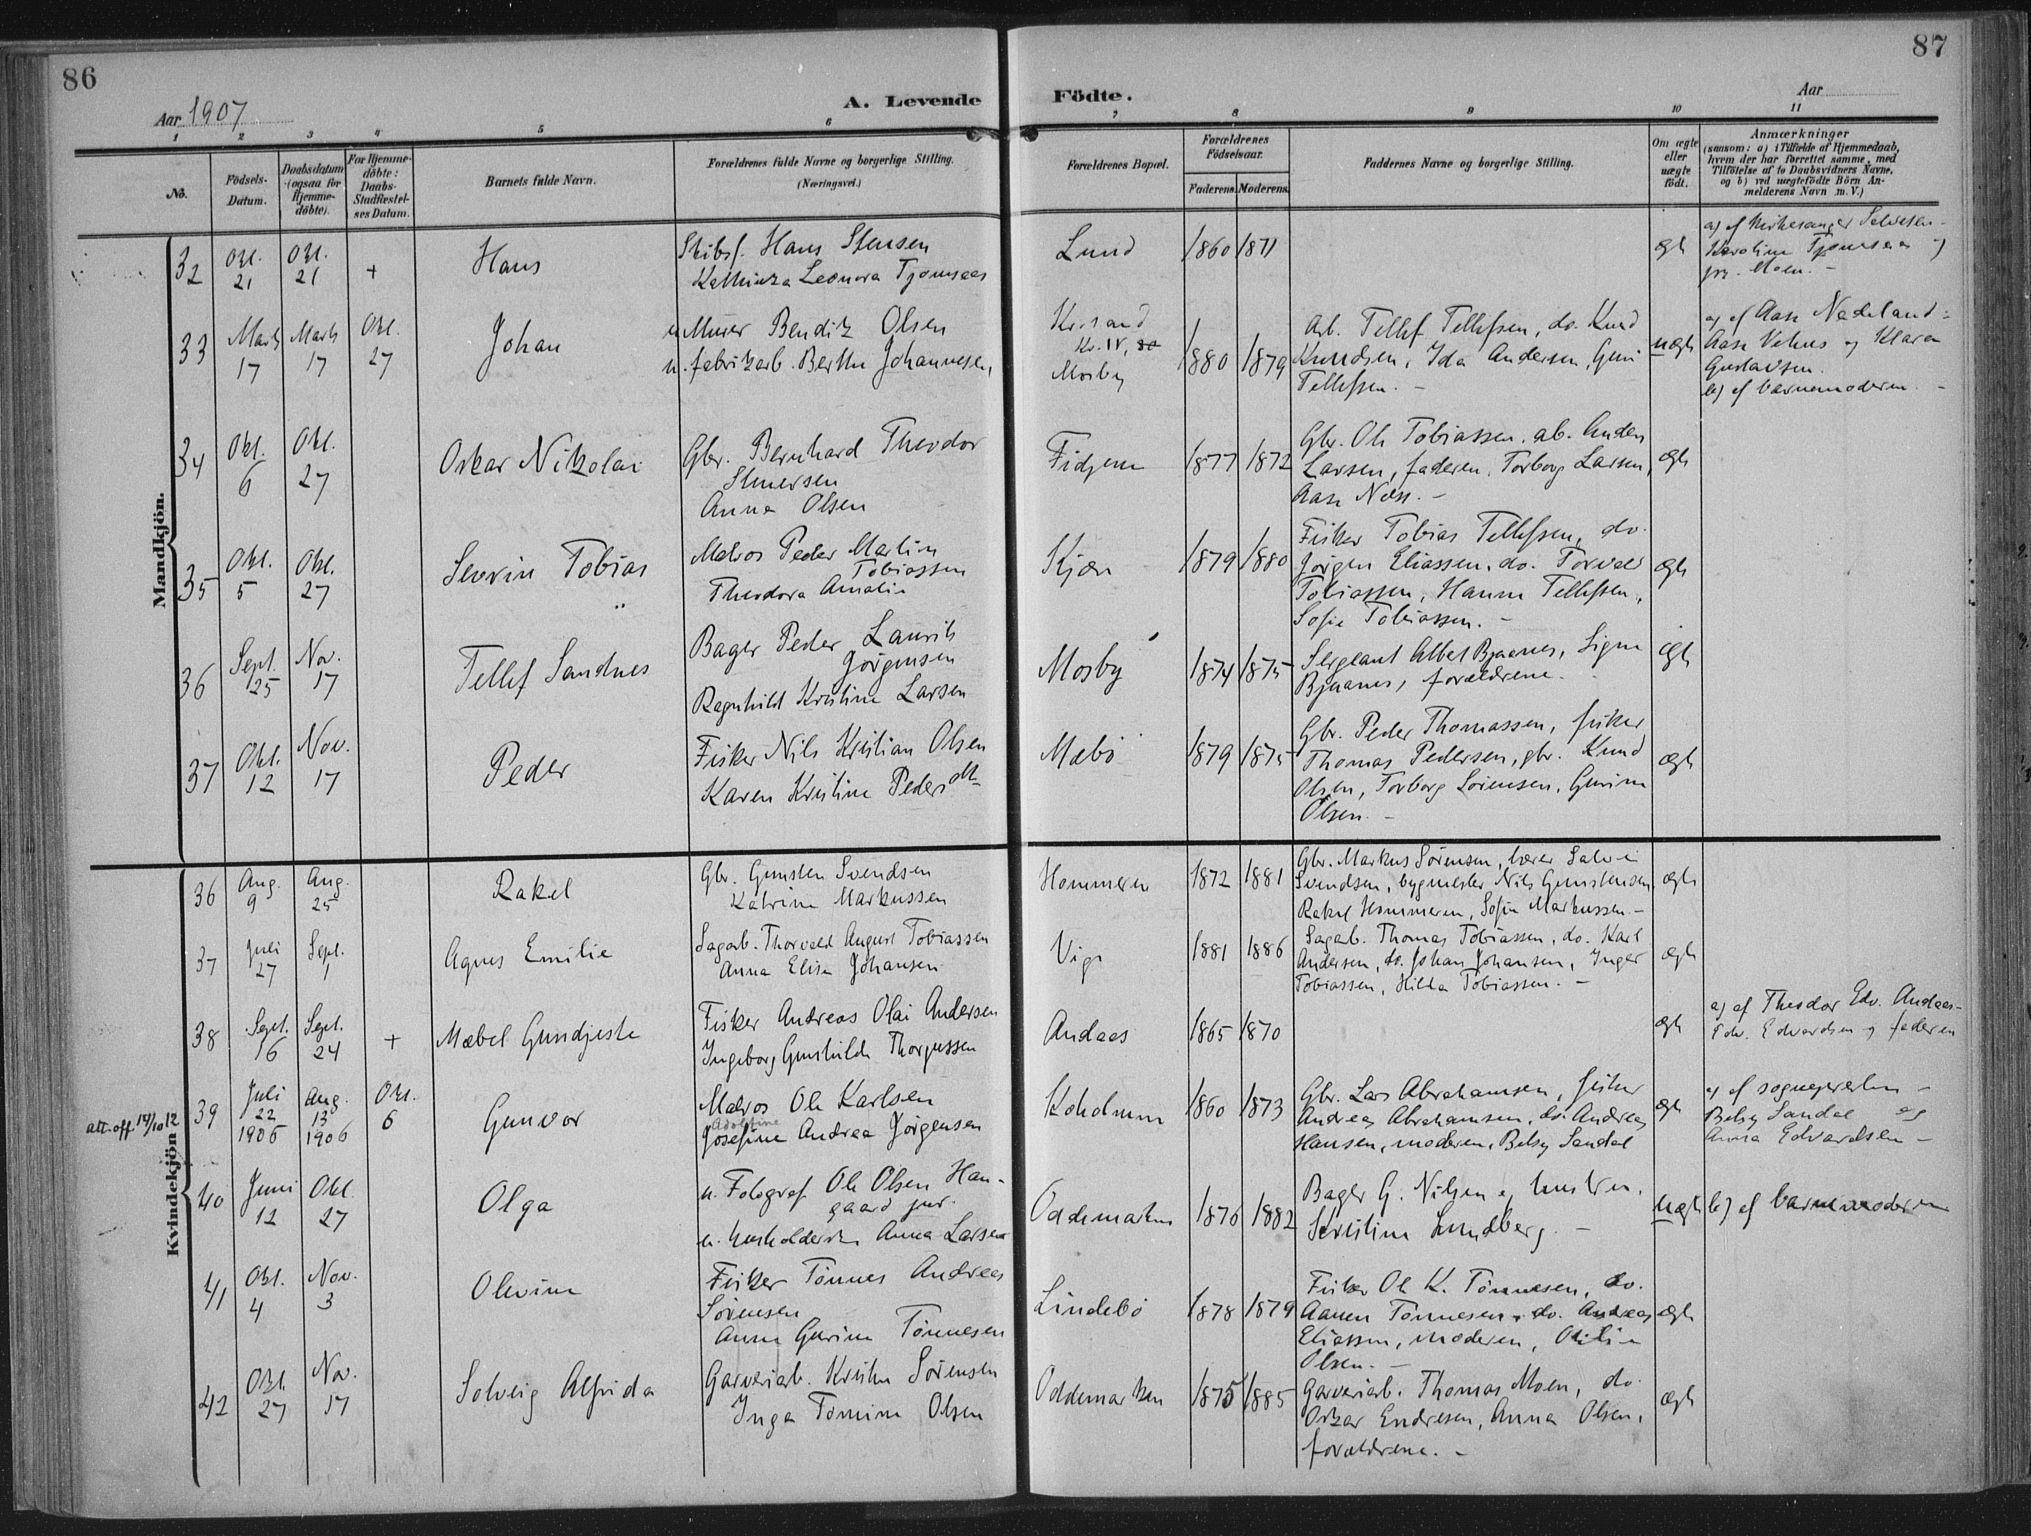 86
87
Aar 1907
A. Levende Födte.
Aar
1 2 3 4 5 6 7 8 9 10 11
No.
Födsels-Datum.
Daabsdatum (ogsaa for Hjemmedöbte).
For Hjemmedöbte: Daabs-Stadfæstelses Datum.
Barnets fulde Navn.
Forældrenes fulde Navne og borgerlige Stilling.
(Næringsvei.)
Forældrenes Bopæl.
Forældrenes Födselsaar.
Faderens. Moderens.
Faddernes Navne og borgerlige Stilling.
Om ægte eller uægte födt.
Anmærkninger
(saasom: a) i Tilfælde af Hjemmedaab,
hvem der har forrettet samme, med
Tilföielse af to Daabsvidners Navne,
og b) ved uægtefödte Börn Anmelderens Navn m.V.)
Mandkjön.
32 Okt. 21 Okt. 21 + Hans
Skibsf. Hans Stensen
Kathinka Leonora Tjomsaas
Lund 1860 1871 ægte
a) af Kirkesanger Salvesen
Karoline Tjomsaas og
Moen. -
33 Marts 17 Marts 17 Okt. 27 Johan
u. Murer Bendik Olsen
u. fabrikarb. Berthe Johannesen,
Krsand
Kr. IV, 80
Mosby
1880 1879
Arb. Tellef Tellefsen, do. Knud
Knudsen, Ida Andersen, Guri
Tellefsen. -
uægte
a) af Aase Nedeland
Aase Vehus og Klara
Gustavsen.
b) af barnemoderen. -
34 Okt. 6 Okt. 27 Oskar Nikolai
Gbr. Bernhard Theodor
Stenersen
Anna Olsen
Fidjene 1877 1872
Gbr. Ole Tobiassen, ab. Anders
Larsen, faderen, Torborg Larsen,
Aase Næss. -
ægte
35 Okt. 5 Okt. 27 Severin Tobias
Matros Peder Martin
Tobiassen
Theodora Amalie
"
Kjær 1879 1880
Fisker Tobias Tellefsen, do.
Jørgen Eliassen, do. Torvald
Tobiassen, Hanne Tellefsen,
Sofie Tobiassen. -
ægte
36 Sept. 25 Nov. 17 Tellef Sandnes
Bager Peder Laurits
Jørgensen
Ragnhild Kristine Larsen
Mosby 1874 1875
Sergeant Albet Bjaanes, Signe
Bjaanes, forældrene.
ægte
37 Okt. 12 Nov. 17 Peder
Fisker Nils Kristian Olsen
Karen Kristine Pedersdt
Mæbø 1879 1875
Gbr. Peder Thomassen, fisker
Thomas Pedersen, gbr. Knud
Olsen, Torborg Sørensen, Gurine
Olsen. -
ægte
Kvindekjön
36 Aug. 9 Aug. 25 Rakel
Gbr. Gunsten Svendsen
Katrine Markussen
Hommeren 1872 1881
Gbr. Markus Sørensen, lærer Salve
Svendsen, bygmester Nils Gunstensen
Rakel Hommeren, Sofie Markussen. -
ægte
37 Juli 27 Sept. 1 Agnes Emilie
Sagarb. Thorvald August Tobiassen
Anna Elise Johansen
Vige 1881 1886
Sagarb. Thomas Tobiassen, do. Karl
Andersen, do. Johan Johansen, Inger
Tobiassen, Hilda Tobiassen. -
ægte
38 Sept. 16 Sept. 24 + Mabel Gundjeste
Fisker Andreas Olai Andersen
Ingeborg Gunhilde Thorjussen
Andaas 1865 1870 ægte
a) af Theodor Edv. Andaas
Edv. Edvardsen og faderen
att. off. 14/10 12
39 Juli 22 1906 Aug. 13 1906 Okt. 6 Gunvor
Matros Ole Karlsen
Adolfine
Josefine Andrea Jørgensen
Koholmen 1860 1873
Gbr. Lars Abrahamsen, fisker
Andreas Abrahamsen, do. Andreas
Hansen, moderen, Betsy Sandal
ægte
a) af sognepresten
Betsy Sandal og
Anna Edvardsen -
40 Juni 12 Okt. 27 Olga
u. Fotograf Ole Olsen Haugaard jur.
u. husholderske Anna Larsen
Oddemarken 1876 1882
Bager G. Nilsen og hustru,
Kristine Lundberg. -
uægte
b) af barnemoderen
41 Okt. 4 Nov. 3 Olevine
Fisker Tønnes Andreas
Sørensen
Anne Gurine Tønnesen
Lindebø 1878 1879
Fisker Ole K. Tønnesen, do.
Aanen Tønnesen, do. Andreas
Eliassen, moderen, Otilie
Olsen. -
ægte
42 Okt. 27 Nov. 17 Solveig Alfrida
Garveriarb. Kristen Sørensen
Inga Tomine Olsen
Oddemarken 1875 1885
Garveriarb. Thomas Moen, do.
Oskar Endresen, Anna Olsen,
forældrene. -
ægte